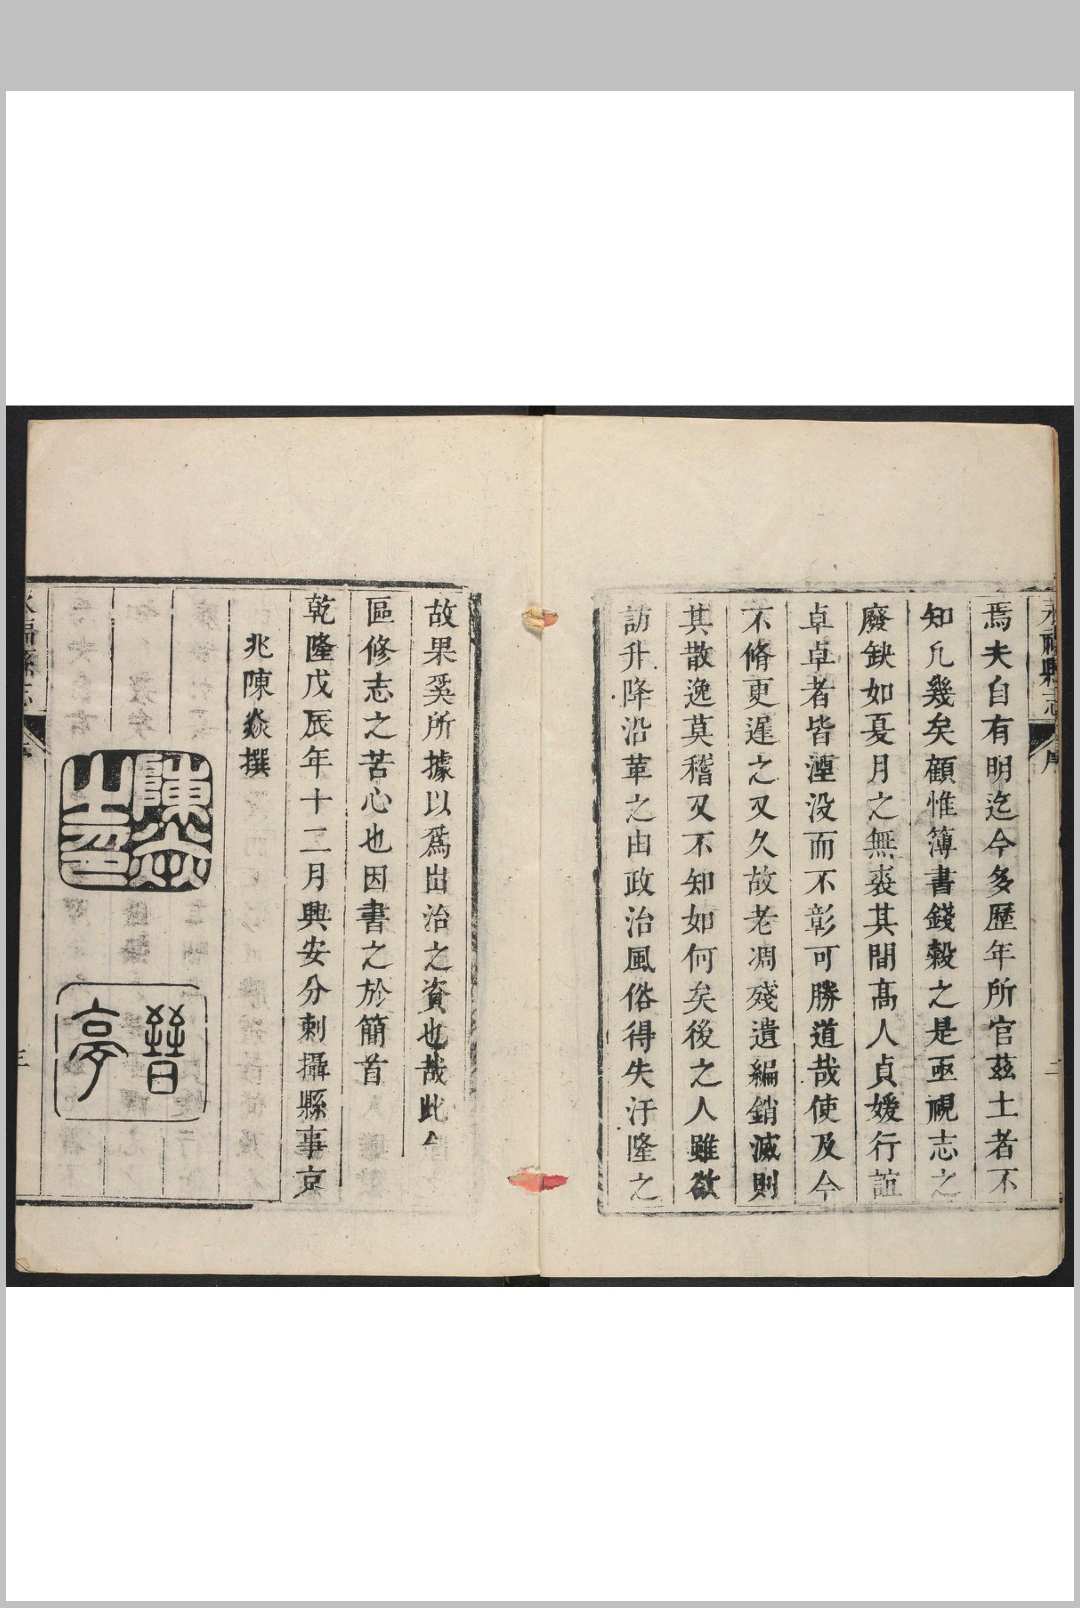 永福縣志
序
二
焉夫自有明迄今多歷年所官茲土者不
知凡幾矣顧惟簿書錢穀之是亟視志之
廢缺如夏月之無裘其間高人貞媛行誼
卓卓者皆湮没而不彰可勝道哉使及今
不脩更遲之又久故老凋殘遺編銷滅則
其散逸莫稽又不知如何矣後之人雖欲
訪升降沿革之由政治風俗得失汙隆之
故果奚所據以爲出治之資也哉此
區修志之苦心也因書之於簡首
乾隆戊辰年十二月興安分刺攝縣事京
兆陳焱撰
陳焱之印
晉亭
永福縣志
三